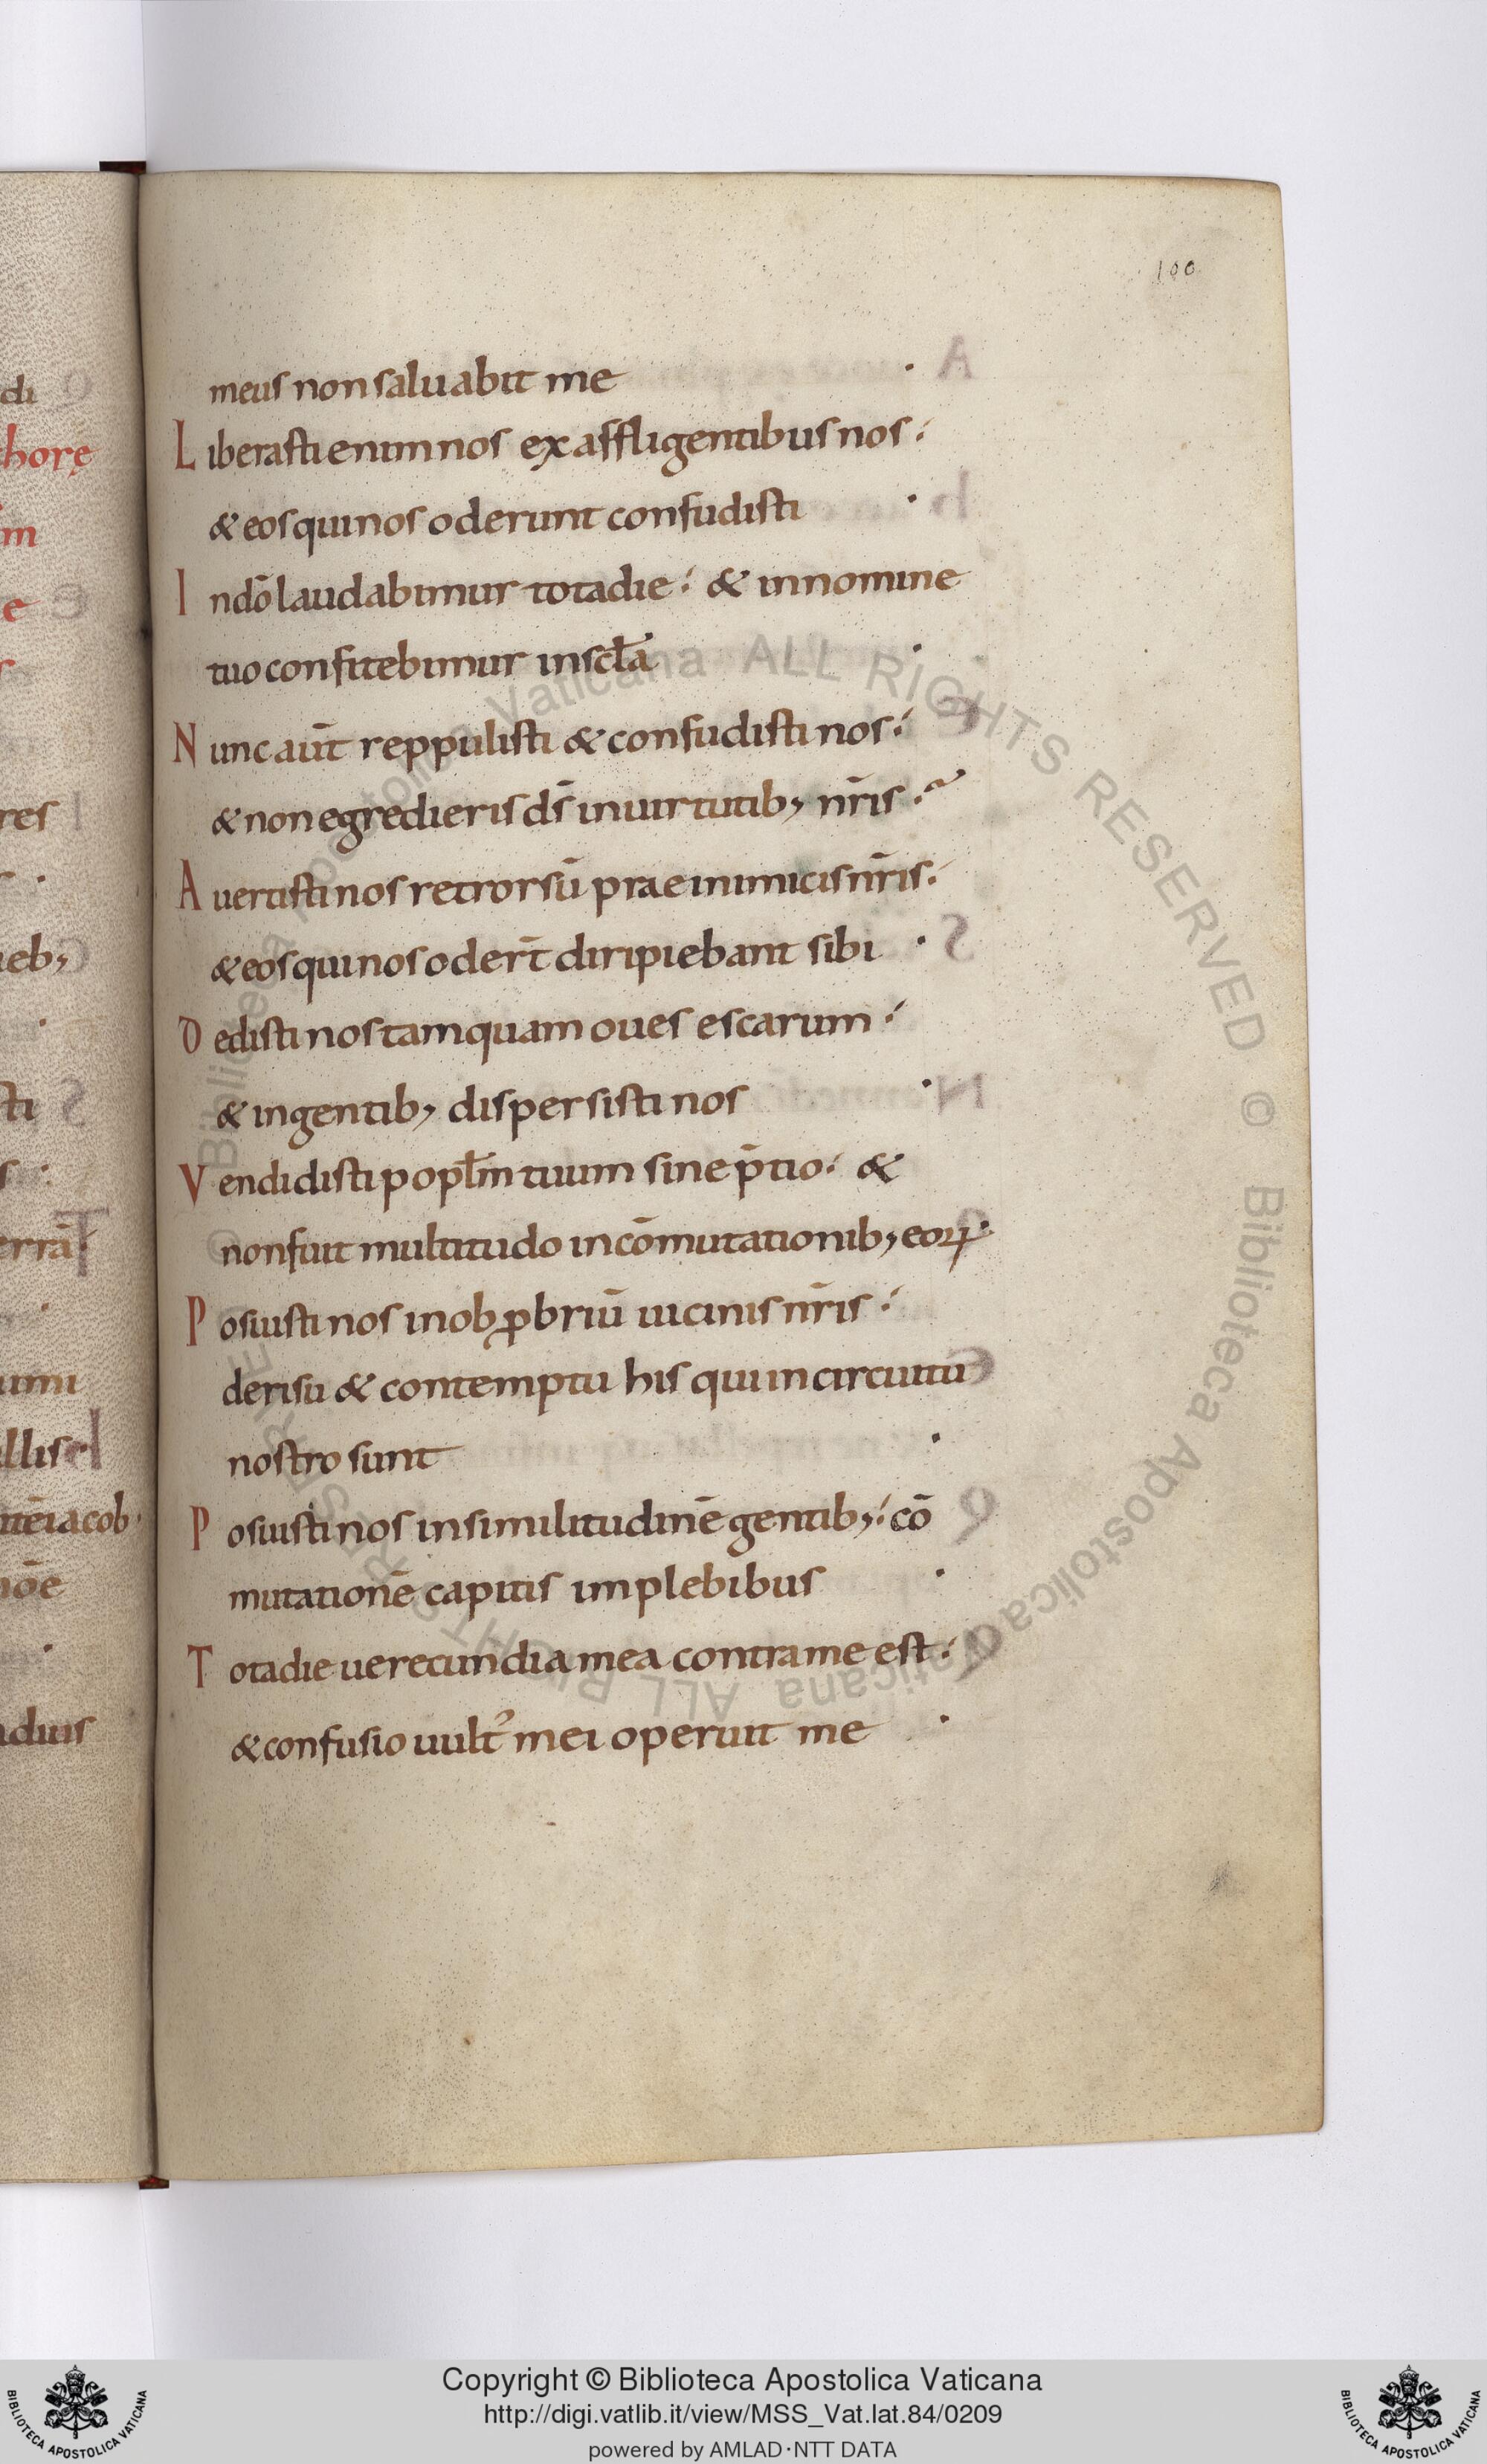 100
meus non saluabit me
Liberasti enim nos ex affligentibus nos:
& eos qui nos oderunt confudisti
In dō laudabimur tota die: & in nomine
tuo confitebimur in scła
Nunc aūt reppulisti & confudisti nos:
& non egredieris ds̄ in uirtutib; nr̄is.
Auertisti nos retrorsū prae inimicis nr̄is.
& eos qui nos odert̄ diripiebant sibi.
Dedisti nos tamquam oues escarum:
& in gentib; dispersisti nos.
Vendidisti popl̄m tuum sine p̄tio: &
non fuit multitudo in cōmutationib; eoꝝ.
Posuisti nos in obꝓbriū uicinis nr̄is:
derisu & contemptu his qui in circuitu
nostro sunt.
Posuisti nos in similitudinē gentib;: cō
mutationē capitis implebibus.
Tota die uerecundia mea contra me est:
& confusio uult᾿ mei operuit me.
di
horę
m
e
res
ieb;
sti
errā
llisr
iacob
duis
© Biblioteca Apostolica Vaticana ALL RIGHTS RESERVED
© Biblioteca Apostolica Vaticana ALL RIGHTS RESERVED
BIBLIOTECA APOSTOLICA VATICANA
Copyright © Biblioteca Apostolica Vaticana
http://digi.vatlib.it/view/MSS_Vat.lat.84/0209
powered by AMLAD·NTT DATA
BIBLIOTECA APOSTOLICA VATICANA